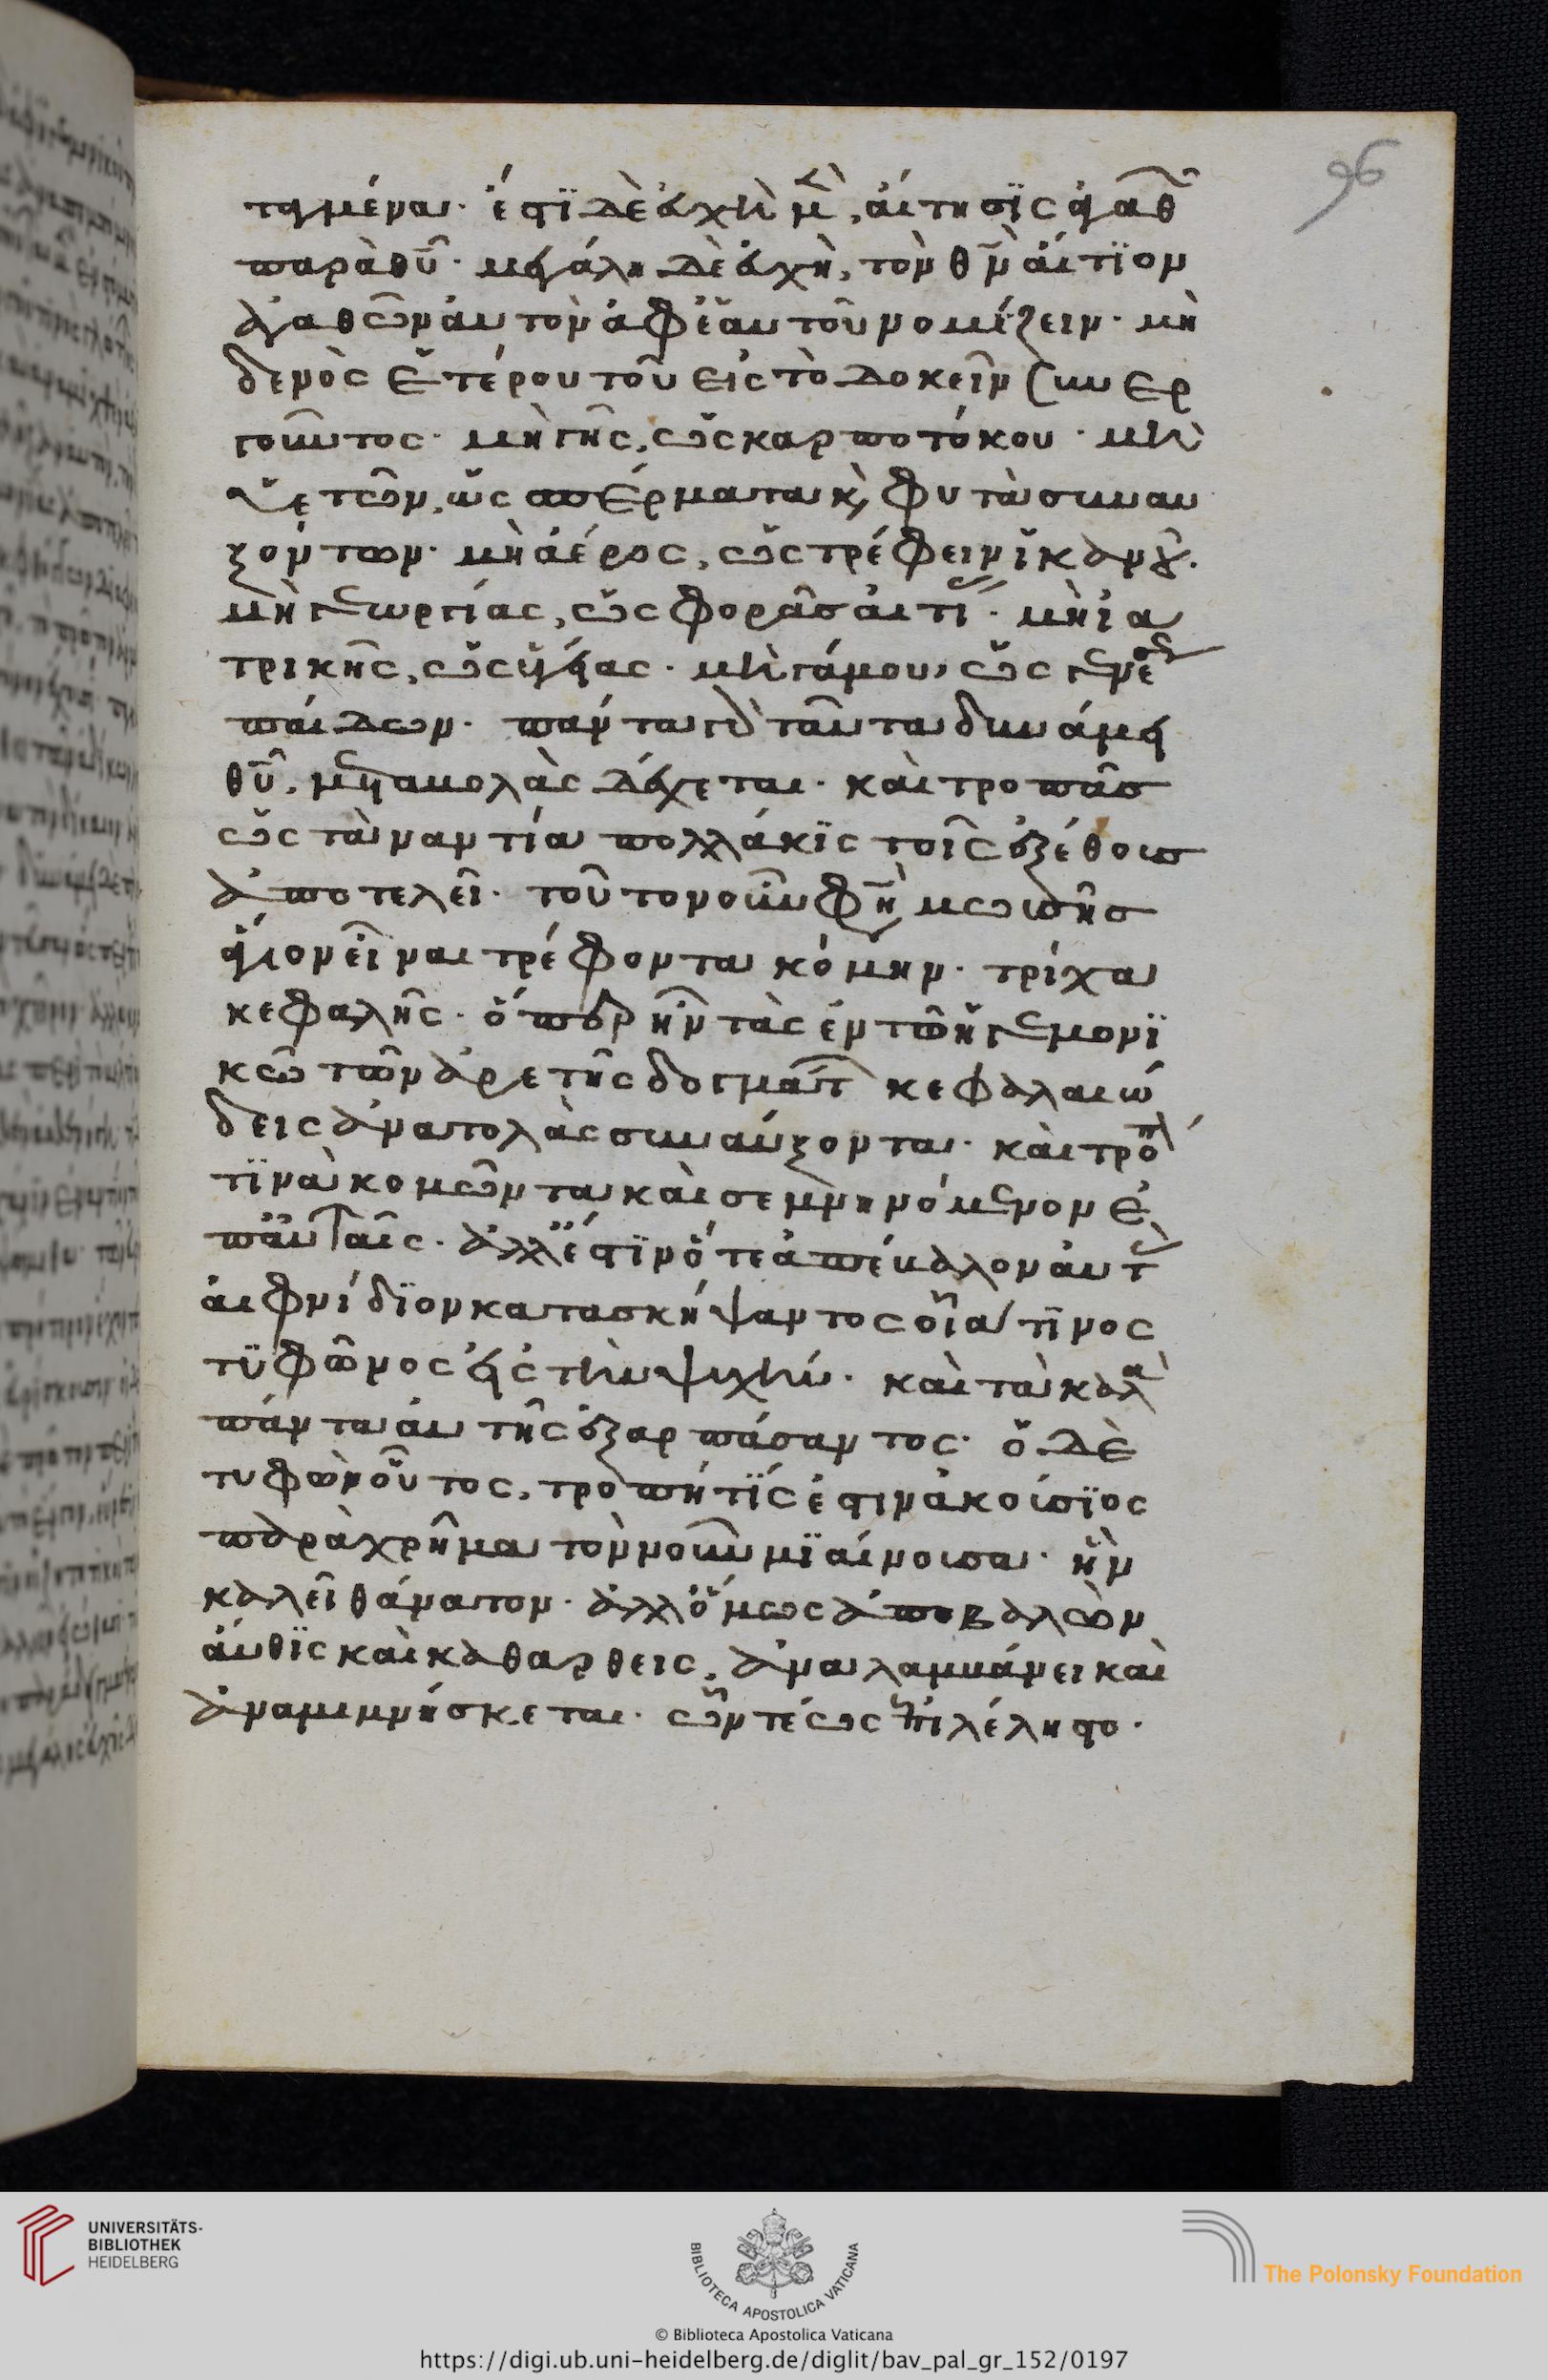 τημένα· ἔστϊ δὲ ἐυχὴ μὲν, ἀίτησϊς ἀγαθῶν
παρὰ θῦ· μεγάλη δὲ ἐυχὴ, τὸν θν̄ ἀίτϊον
ἀγαθῶν ἀυτὸν ἀφ' ἑαυτοῦ νομίζειν· μη
δενὸς ἑτέρου τοῦ εἰς τὸ δοκεῖν συνερ
γοῦντος· μὴ γῆς, ὡς καρποτόκου· μὴ
ὑετῶν, ὡς σπέρματα κ φυτὰ συναυ
ξόντων· μὴ ἀέρος, ὡς τρέφειν ἱκανοῦ.
μὴ γεωργίας, ὡς φορᾶς ἀιτί· μὴ ἰα
τρικῆς, ὡς ὑγείας· μὴ γάμου, ὡς γενέσ
πάιδων· πάντα γὰρ ταῦτα δυνάμει
θῦ, μεταμολὰς δέχεται· κὰι τροπὰς
ὡς τὰναντία πολλάκϊς τοῖς ἐξέθους
ἀποτελεῖ· τοῦτον οὖν φησὶ μωυσῆς
ἅγιον εἶναι τρέφοντα κόμην· τρίχα
κεφαλῆς· ὅπερ ἦν τὰς ἐν τῶ ἡγεμονϊ
κῶ τῶν ἀρετῆς δογμάτ κεφαλαιώ
δεις ἀνατολὰς συναύξοντα· κὰι τρόπ
τϊνὰ κομῶντα κὰι σεμνηνόμενον ἐ
π' ἀυταῖς· ἀλλ' ἔστϊν ὅτε ἀπέβαλον ἀυτ
ἀιφνίδϊον κατασκήψαντος οἷα τϊνος
τϋφῶνος εἰς τὴν ψυχήν· κὰι τὰ καλὰ
πάντα ἀυτῆς ἐξαρπάσαντος· ὁ δὲ
τυφὼν οὗτος, τροπή τΐς ἐστιν ἀκούσϊος
παραχρῆμα τὸν νοῦν μϊαίνουσα· ἣν
καλεῖ θάνατον· ἀλλ' ὅμως ἀποβαλὼν
ἀύθϊς κὰι καθαρθεις, ἀναλαμβάνει κὰι
ἀναμιμνήσκεται· ὧν τέως ἐπιλέληστο·
96
UNIVERSITÄTS-
BIBLIOTHEK
HEIDELBERG
BIBLIOTECA APOSTOLICA VATICANA
The Polonsky Foundation
© Biblioteca Apostolica Vaticana
https://digi.ub.uni-heidelberg.de/diglit/bav_pal_gr_152/0197